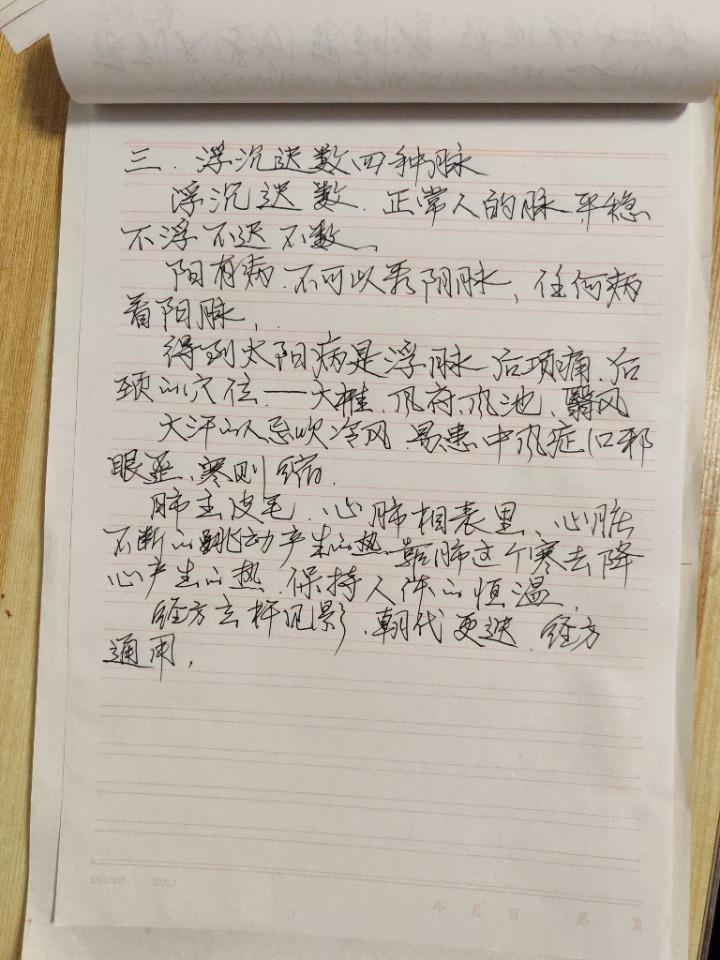 三．浮沉迟数四种脉
浮沉迟数．正常人的脉平稳
不浮不迟不数、
阳有病．不可以看阴脉，任何病
看阳脉，
得到太阳病是浮脉 后项痛、后
颈的穴位——大椎、风府风池、翳风
大汗的人忌吹冷风．易患中风症口邪
眼歪、寒则缩．
肺主皮毛．心肺相表里、心脏
不断的跳动产生的热．靠肺这个寒去降
心产生的热．保持人体的恒温．
经方立杆见影．朝代更迭．经方
通用，
年 月 日 第 页